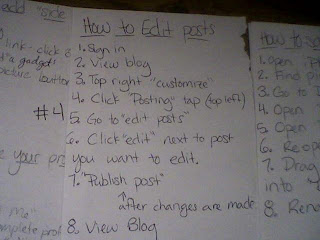 How to Edit posts
1. Sign in
2. View blog
3. Top right "customize"
4. Click "Posting" tap (top left)
5. Go to "edit posts"
6. Click "edit" next to post
you want to edit.
7. "Publish post"
↑
after changes are made
8. View Blog
add "side
link - click
a gadget"
picture button
#4
e your pr
me"
complete prof
How to
1. Open
2. Find pi
3. Go to
4. Open
5. Open
6. Reope
7. Drag
into "
8. Rena